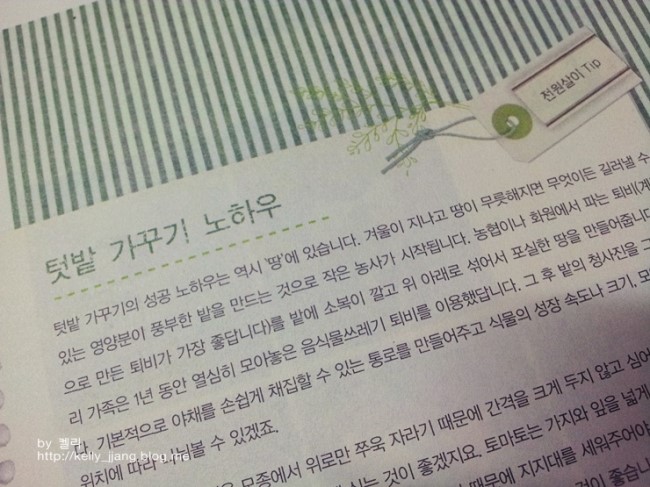 전원살이 Tip
텃밭 가꾸기 노하우
텃밭 가꾸기의 성공 노하우는 역시 '땅'에 있습니다. 겨울이 지나고 땅이 무릇해지면 무엇이든 길러낼 수
있는 영양분이 풍부한 밭을 만드는 것으로 작은 농사가 시작됩니다. 농협이나 화원에서 파는 퇴비(계
으로 만든 퇴비가 가장 좋답니다)를 밭에 소복이 깔고 위 아래로 섞어서 포실한 땅을 만들어줍니다
리 가족은 1년 동안 열심히 모아놓은 음식물쓰레기 퇴비를 이용했답니다. 그 후 밭의 청사진을 그
다. 기본적으로 야채를 손쉽게 채집할 수 있는 통로를 만들어주고 식물의 성장 속도나 크기, 모
위치에 따라 나눠볼 수 있겠죠.
모종에서 위로만 쭈욱 자라기 때문에 간격을 크게 두지 않고 심어
심는 것이 좋겠지요. 토마토는 가지와 잎을 넓게
때문에 지지대를 세워주어야
것이 좋습니
by 켈리
http://kelly_jjang.blog.me